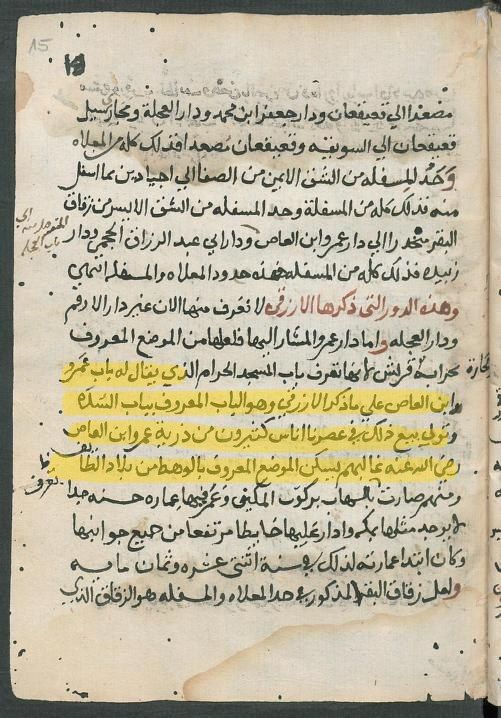 15
مصعدا الي قعيقعان ودار جعفر ابن محمد ودار العجلة وما حاز سيل
قعيقعان الي السويقه وقعيقعان مصعدا فذلك كله من المعلاه
وحد المسفله من الشق الايمن من الصفا الي اجيادين بما اسفل
منه فذلك كله من المسفلة وحد المسفله من الشق الايسر من زقاق
البقر منحدرا الي دار عمرو ابن العاص ودار ابي عبد الرزاق الجمحي ودار
زبيده فذلك كله من المسفله فهذه حدود المعلاه والمسفله انتهي
وهذه الدور التي ذكرها الازرقي لا تعرف منها الان غير دار الارقم
ودار العجله واما دار عمرو المشار اليها فلعلها من الموضع المعروف
بحزانة قريش لانها تقرب باب المسجد الحرام الذي يقال له باب عمرو
وابن العاص علي ما ذكر الازرقي وهو الباب المعروف بباب السدة
وتولي بيع ذلك في عصرنا اناس كثيرون من ذرية عمرو ابن العاص
رضي الله عنه غالبهم يسكن الموضع المعروف بالوهط من بلاد الطا
ومنهم صارت للشهاب بركوت المكيني وعمر فيها عماره حسنه جدا
لا يوجد مثلها بمكه وادار عليها حايطا مرتفعا من جميع جوانبها
وكان ابتدا عمارته لذلك في سنة اثنتي عشره وثمان مايه
ولعل زقاق البقر المذكور في حد المعلاه والمسفله هو الزقاق الذي